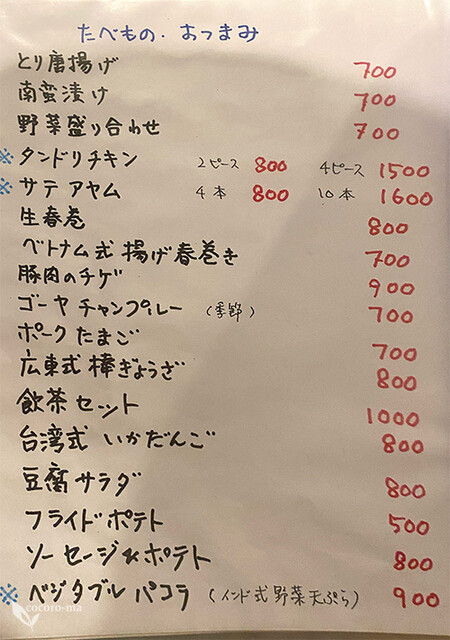 たべもの・おつまみ
とり唐揚げ 700
南蛮漬け 700
野菜盛り合わせ 700
※ タンドリチキン 2ピース 800 4ピース 1500
※ サテ アヤム 4本 800 10本 1600
生春巻 800
ベトナム式 揚げ春巻き 700
豚肉のチゲ 900
ゴーヤ チャンプルー (季節) 700
ポークたまご 700
広東式 棒ぎょうざ 800
飲茶セット 1000
台湾式 いかだんご 800
豆腐サラダ 800
フライドポテト 500
ソーセージ&ポテト 800
※ ベジタブル パコラ (インド式野菜天ぷら) 900
cocoro-ma